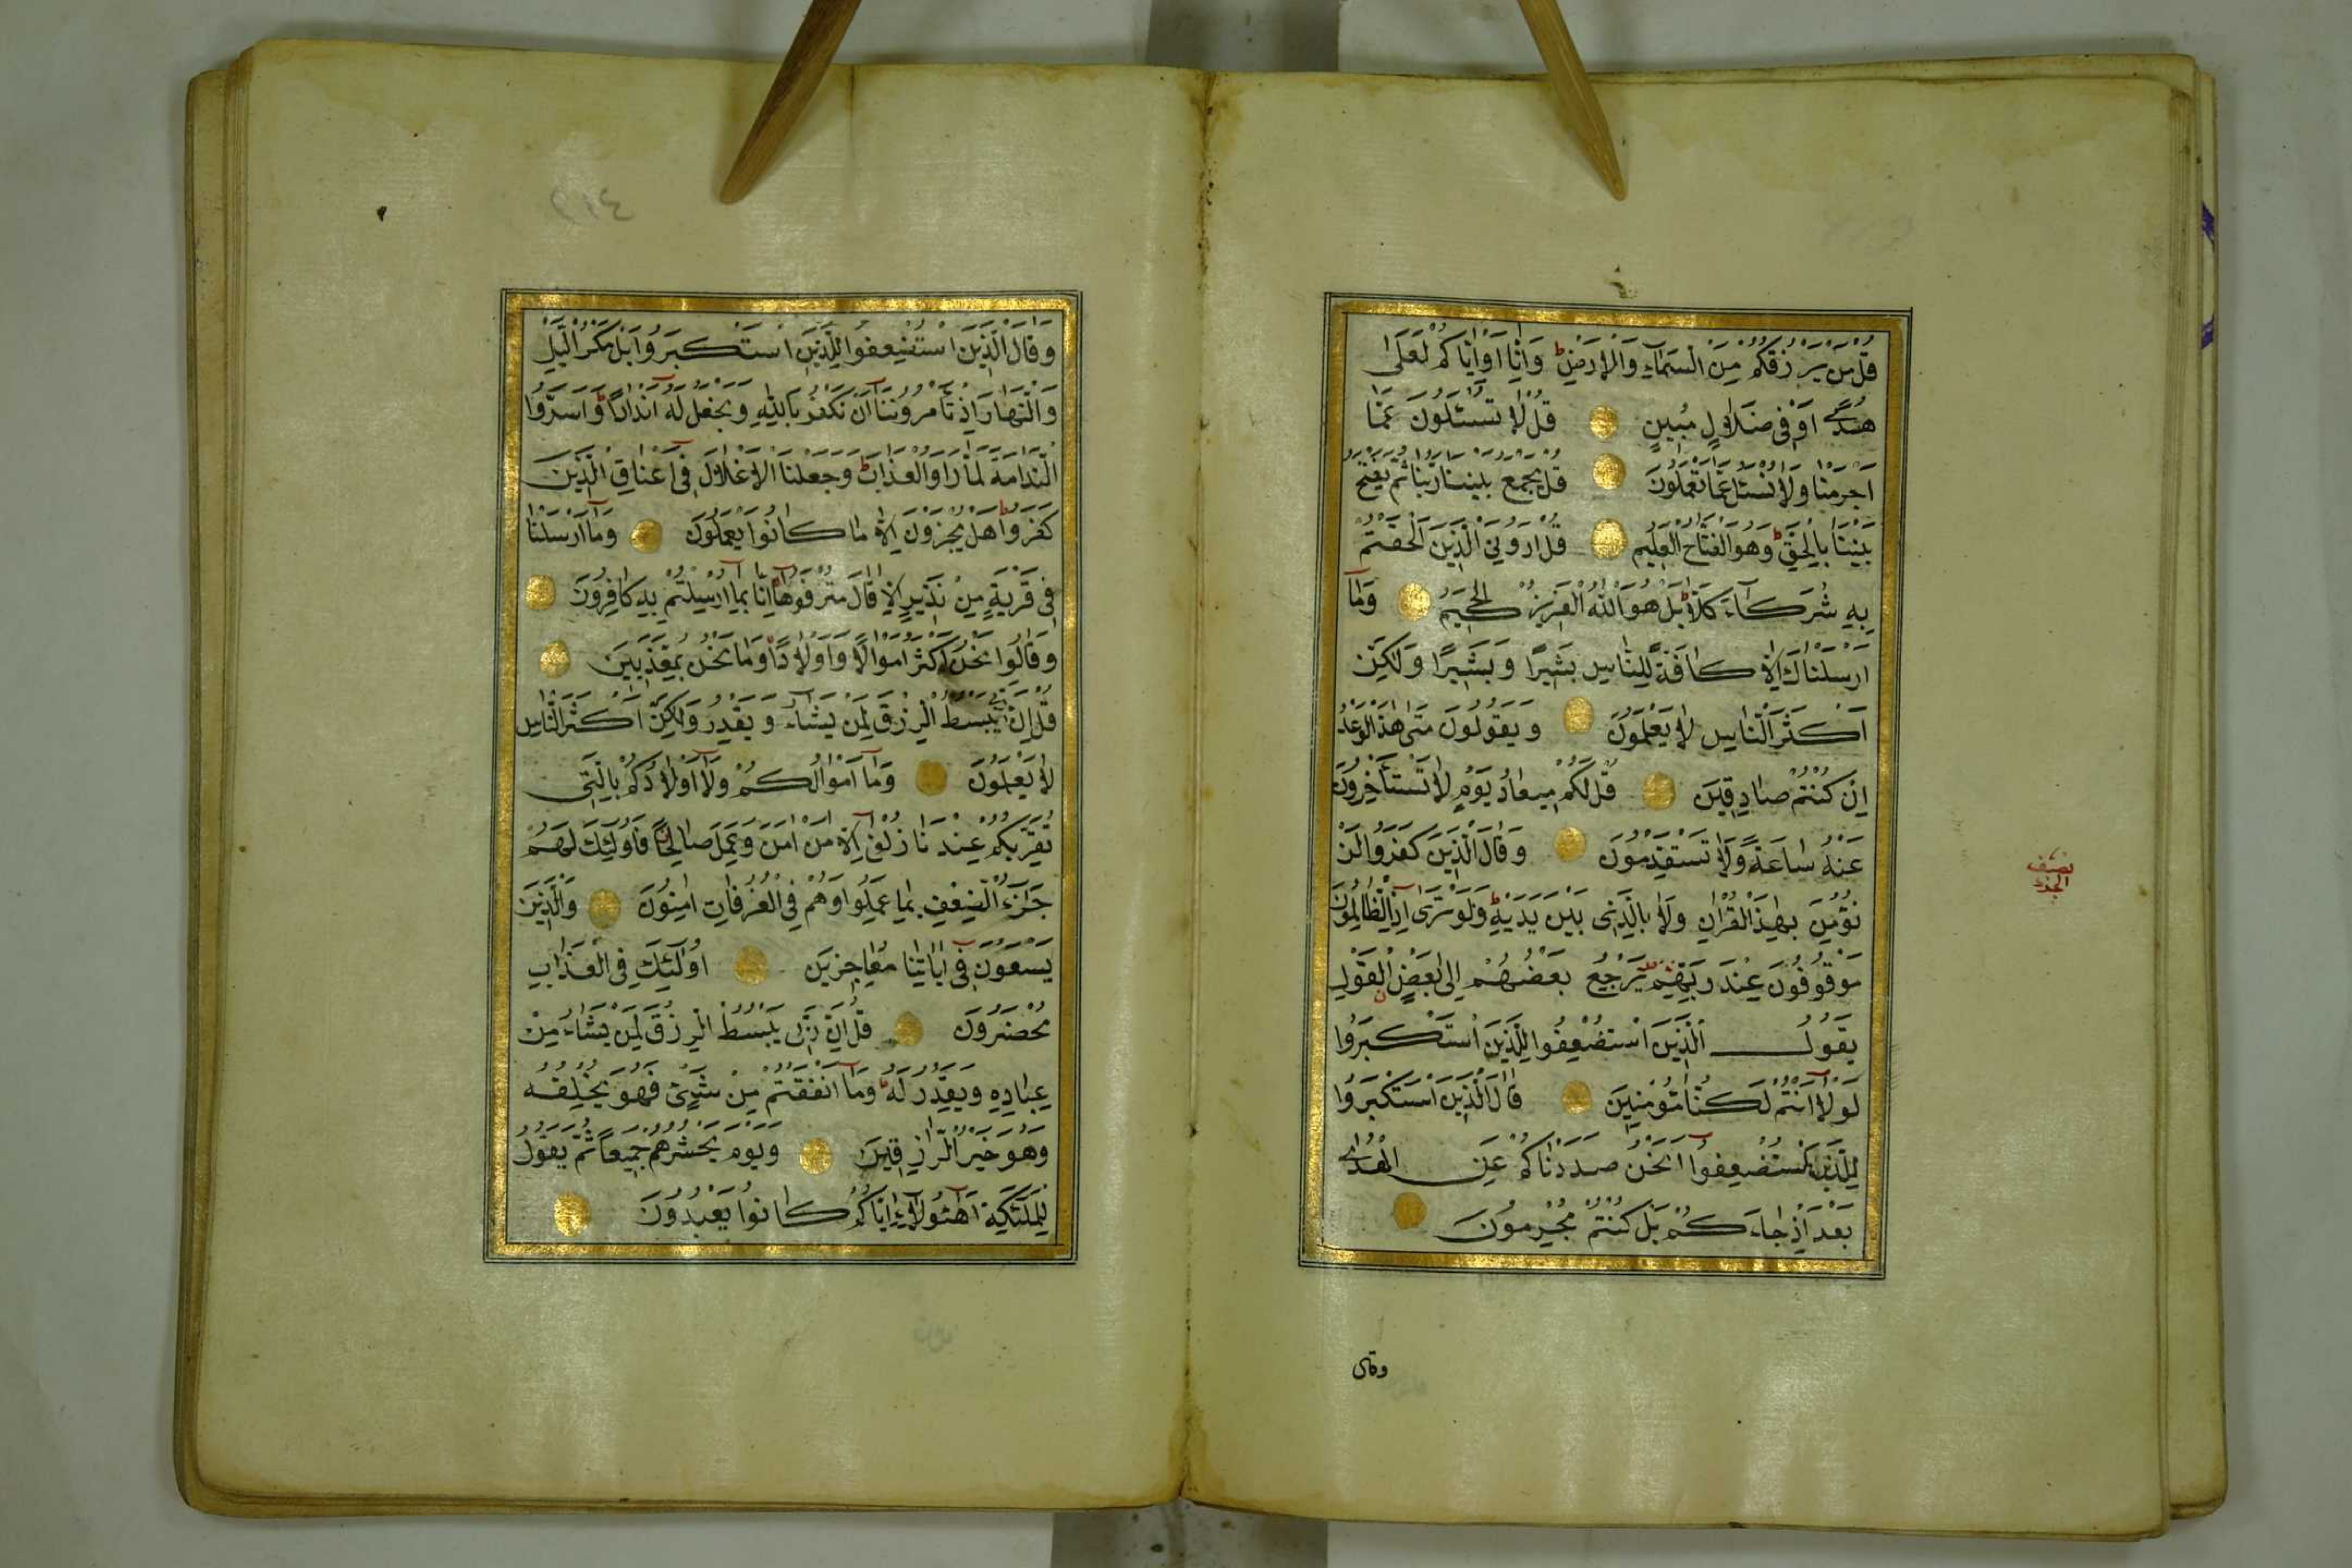 قُلْ مَنْ يَرْزُقُكُمْ مِنَ السَّمَاءِ وَالْاَرْضِ ط وَاِنَّا اَوْاِيَّاكُمْ لَعَلٰى
هُدًى اَوْ فِى ضَلَالٍ مُبِينٍ قُلْ لَا تُسْـَٔلُونَ عَمَّا
اَجْرَمْنَا وَلَا نُسْـَٔلُ عَمَّا تَعْمَلُونَ قُلْ يَجْمَعُ بَيْنَنَا رَبُّنَا ثُمَّ يَفْتَحُ
بَيْنَنَا بِالْحَقِّ ط وَهُوَ الْفَتَّاحُ الْعَلِيمُ قُلْ اَرُونِىَ الَّذِينَ اَلْحَقْتُمْ
بِهِ شُرَكَآءَ كَلَّا ط بَلْ هُوَ اللّٰهُ الْعَزِيزُ الْحَكِيمُ وَمَٓا
اَرْسَلْنَاكَ اِلَّا كَافَّةً لِلنَّاسِ بَشِيرًا وَبَشِيرًا وَلٰكِنَّ
اَكْثَرَ النَّاسِ لَا يَعْلَمُونَ وَيَقُولُونَ مَتٰى هٰذَا الْوَعْدُ
اِنْ كُنْتُمْ صَادِقِينَ قُلْ لَكُمْ مِيعَادُ يَوْمٍ لَا تَسْتَأْخِرُونَ
عَنْهُ سَاعَةً وَلَا تَسْتَقْدِمُونَ وَقَالَ الَّذِينَ كَفَرُوا لَنْ
نُؤْمِنَ بِهٰذَا الْقُرْاٰنِ وَلَا بِالَّذِى بَيْنَ يَدَيْهِ ط وَلَوْ تَرٰٓى اِذِ الظَّالِمُونَ
مَوْقُوفُونَ عِنْدَ رَبِّهِمْ يَرْجِعُ بَعْضُهُمْ اِلٰى بَعْضٍ الْقَوْلَ
يَقُولُ الَّذِينَ اسْتُضْعِفُوا لِلَّذِينَ اسْتَكْبَرُوا
لَوْلَٓا اَنْتُمْ لَكُنَّا مُؤْمِنِينَ قَالَ الَّذِينَ اسْتَكْبَرُوا
لِلَّذِينَ اسْتُضْعِفُوٓا اَنَحْنُ صَدَدْنَاكُمْ عَنِ الْهُدٰى
بَعْدَ اِذْ جَاءَكُمْ بَلْ كُنْتُمْ مُجْرِمُونَ
وقال
نصف
الجزء
٢١٤
وَقَالَ الَّذِينَ اسْتُضْعِفُوا لِلَّذِينَ اسْتَكْبَرُوا بَلْ مَكْرُ الَّيْلِ
وَالنَّهَارِ اِذْ تَأْمُرُونَنَٓا اَنْ نَكْفُرَ بِاللّٰهِ وَنَجْعَلَ لَهُٓ اَنْدَادًا ط وَاَسَرُّوا
النَّدَامَةَ لَمَّا رَاَوُا الْعَذَابَ ط وَجَعَلْنَا الْاَغْلَالَ فِٓى اَعْنَاقِ الَّذِينَ
كَفَرُوا ط هَلْ يُجْزَوْنَ اِلَّا مَا كَانُوا يَعْمَلُونَ وَمَٓا اَرْسَلْنَا
فِى قَرْيَةٍ مِنْ نَذِيرٍ اِلَّا قَالَ مُتْرَفُوهَٓا اِنَّا بِمَٓا اُرْسِلْتُمْ بِهِ كَافِرُونَ
وَقَالُوا نَحْنُ اَكْثَرُ اَمْوَالًا وَاَوْلَادًا وَمَا نَحْنُ بِمُعَذَّبِينَ
قُلْ اِنَّ رَبِّى يَبْسُطُ الرِّزْقَ لِمَنْ يَشَٓاءُ وَيَقْدِرُ وَلٰكِنَّ اَكْثَرَ النَّاسِ
لَا يَعْلَمُونَ وَمَٓا اَمْوَالُكُمْ وَلَٓا اَوْلَادُكُمْ بِالَّتِى
تُقَرِّبُكُمْ عِنْدَنَا زُلْفٰٓى اِلَّا مَنْ اٰمَنَ وَعَمِلَ صَالِحًا فَاُولٰٓئِكَ لَهُمْ
جَزَٓاءُ الضِّعْفِ بِمَا عَمِلُوا وَهُمْ فِى الْغُرُفَاتِ اٰمِنُونَ وَالَّذِينَ
يَسْعَوْنَ فِٓى اٰيَاتِنَا مُعَاجِزِينَ اُولٰٓئِكَ فِى الْعَذَابِ
مُحْضَرُونَ قُلْ اِنَّ رَبِّى يَبْسُطُ الرِّزْقَ لِمَنْ يَشَاءُ مِنْ
عِبَادِهِ وَيَقْدِرُ لَهُ ط وَمَٓا اَنْفَقْتُمْ مِنْ شَيْئٍ فَهُوَ يُخْلِفُهُ
وَهُوَ خَيْرُ الرَّازِقِينَ وَيَوْمَ يَحْشُرُهُمْ جَمِيعًا ثُمَّ يَقُولُ
لِلْمَلٰٓئِكَةِ اَهٰٓؤُلَٓاءِ اِيَّاكُمْ كَانُوا يَعْبُدُونَ